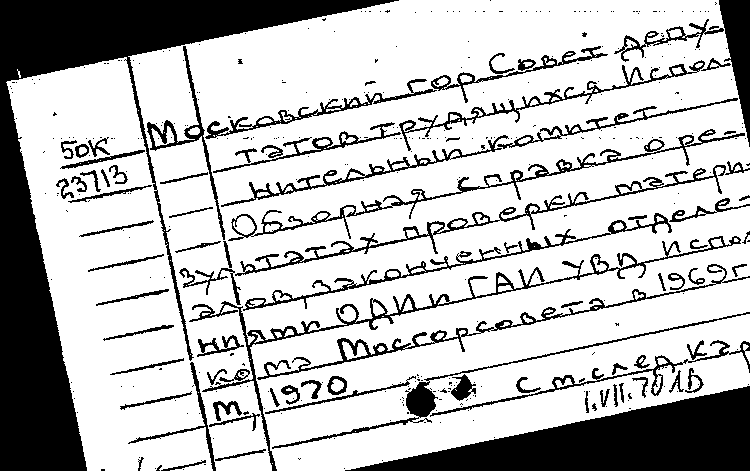 50К
23713
Московский гор Совет депу-
татов трудящихся. Испол-
нительный комитет.
Обзорная справка о ре-
зультатах проверки матери-
алов, законченных отделе-
ниями ОДИ и ГАИ УВД испол-
кома Мосгорсовета в 1969г
М., 1970.
См. след кар
1.VII.70